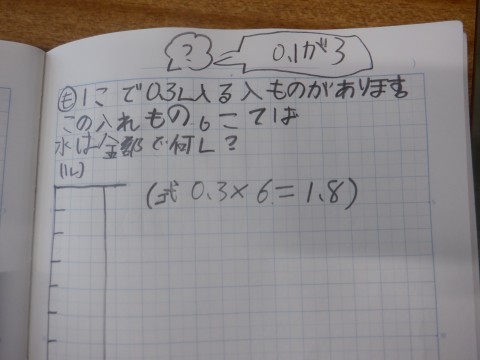 ?
0.1が3
も 1こで0.3L入る入ものがあります
この入れもの6こでは
水は全部で何L?
(1L)
(式 0.3×6=1.8)